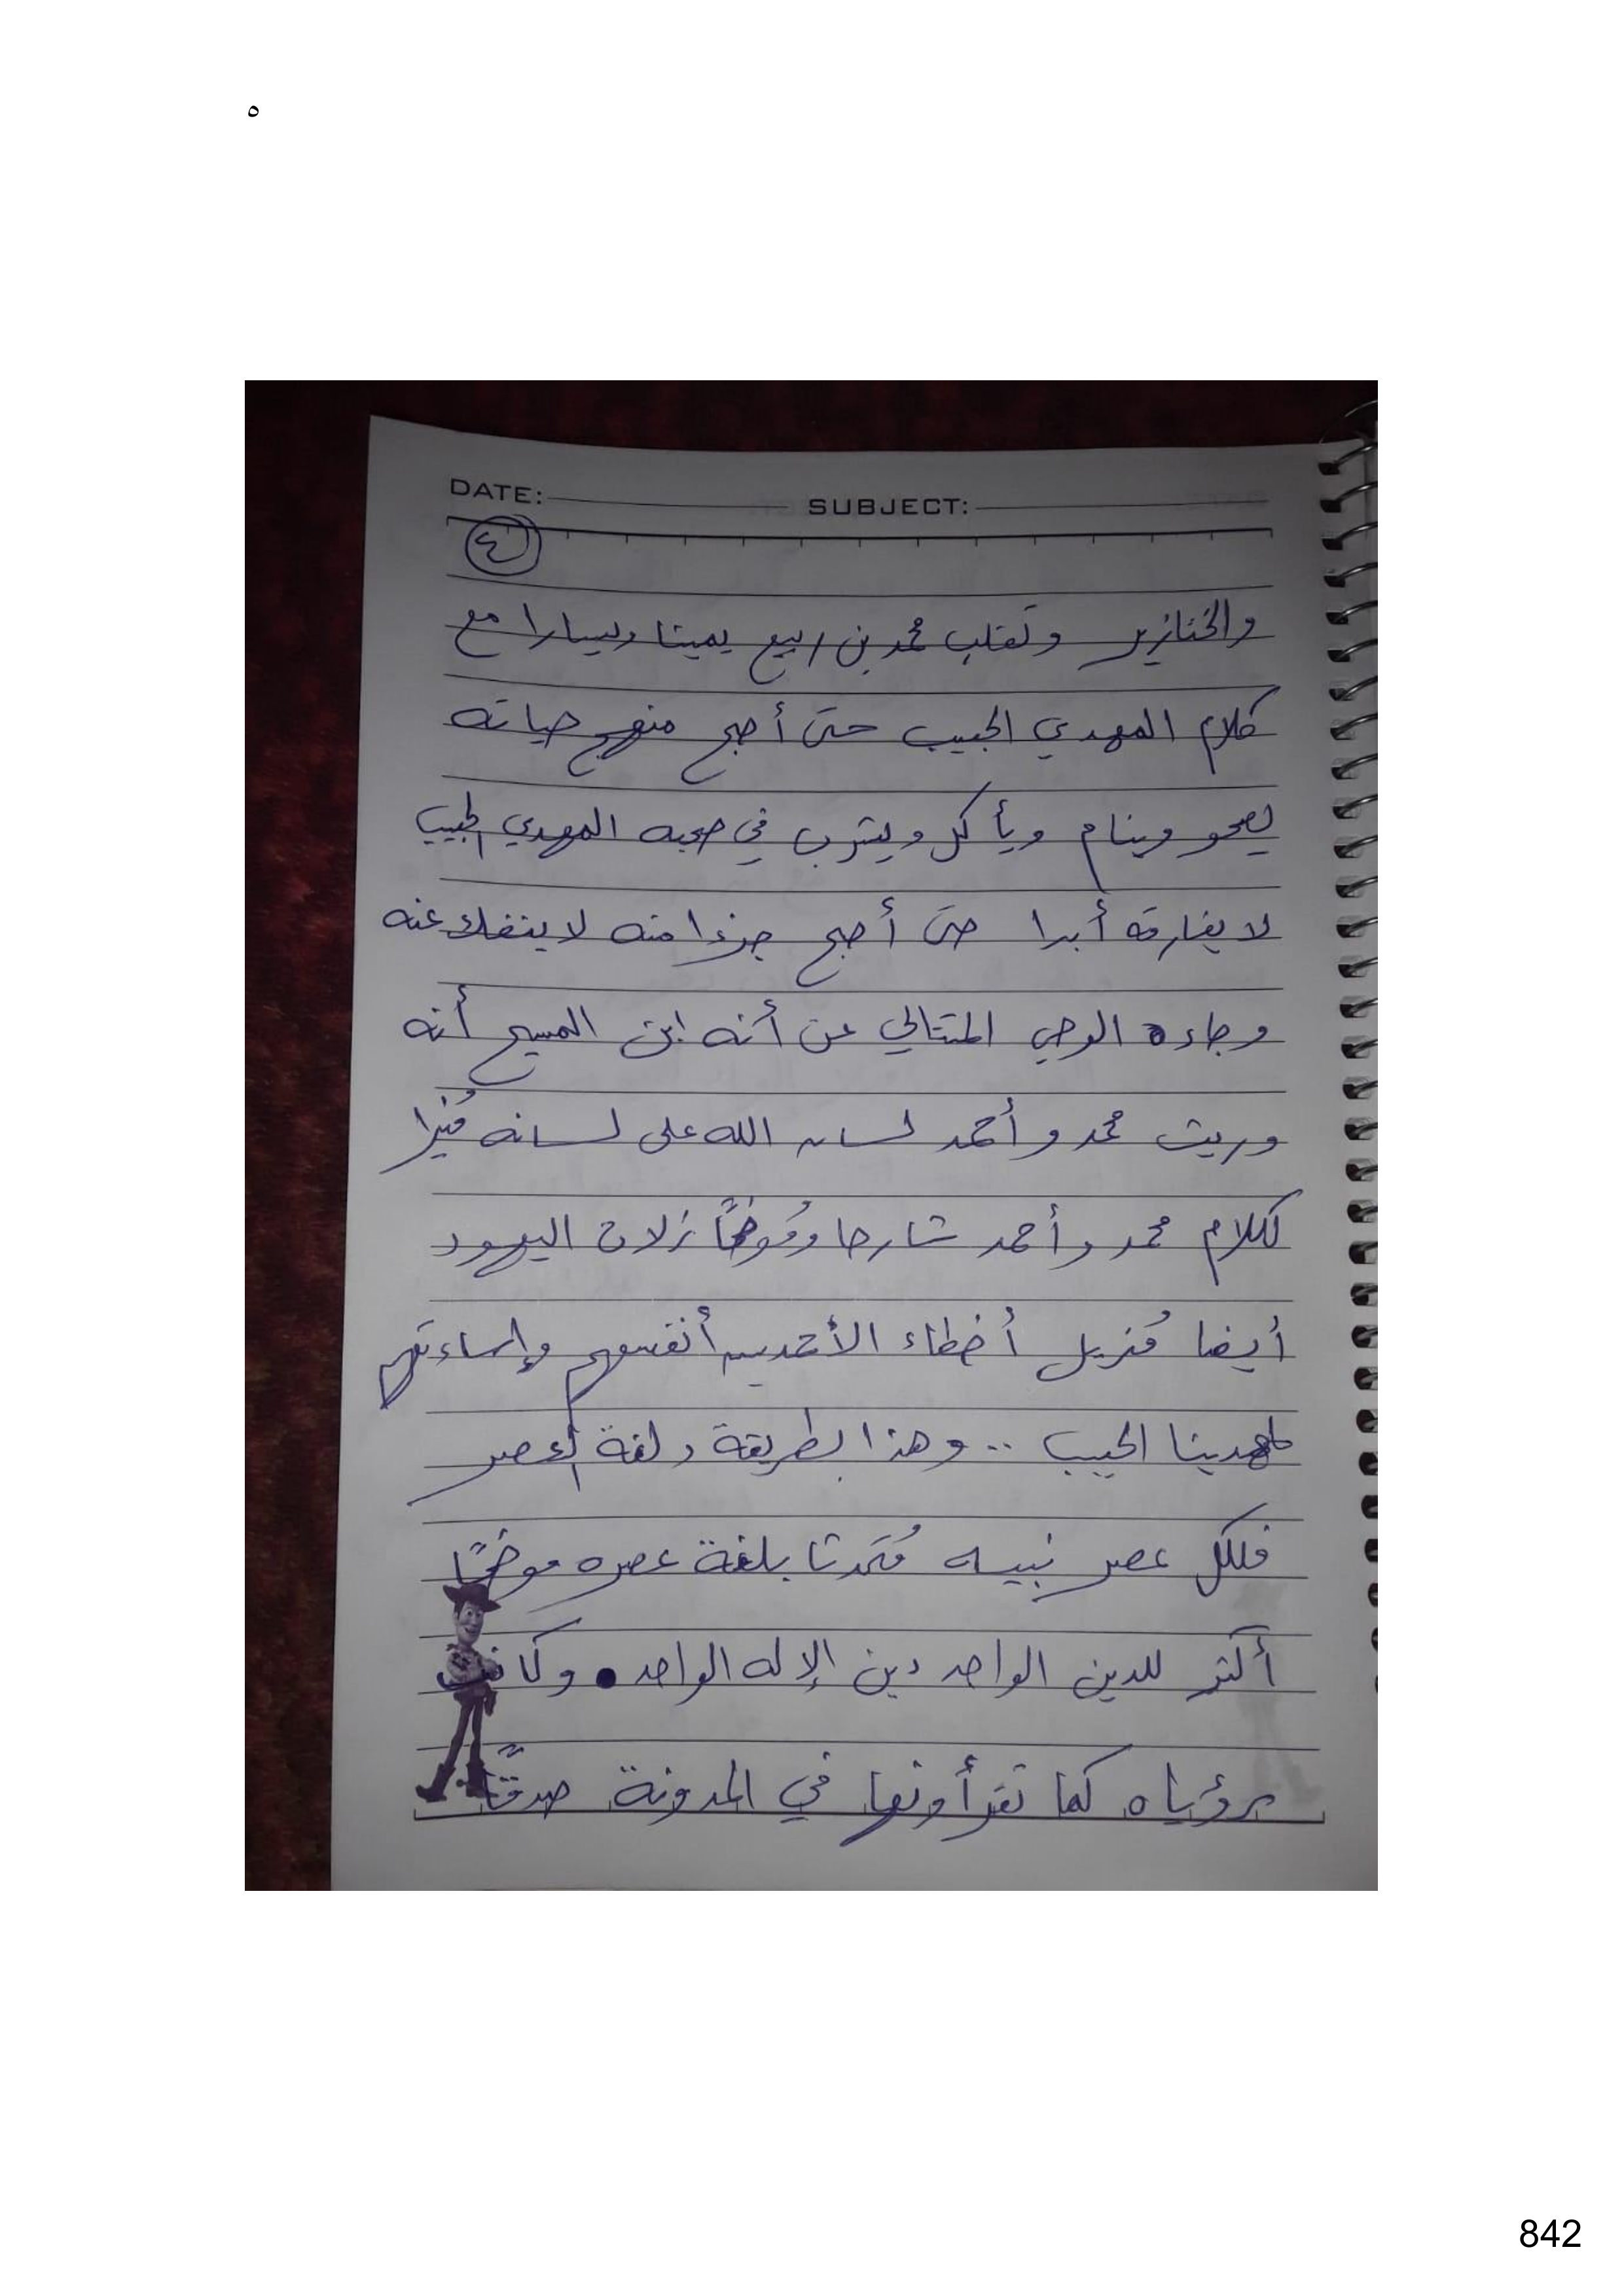 ه
DATE: SUBJECT:
٤
والخنازير وتقلب محمد بن ربيع يمينا ويسارا مع
كلام المهدي الحبيب حتى أصبح منهج حياته
يصحو وينام ويأكل ويشرب في صحبه المهدي الحبيب
لا يفارقه أبدا حتى أصبح جزءا منه لا ينفك عنه
وجاءه الوحي المتتالي عن أنه ابن المسيح أنه
وريث محمد وأحمد لسان الله على لسانه
لكلام محمد وأحمد شارحا زلات اليهود
أيضا مُزيل أخطاء الأحمديين أنفسهم وإساءتهم
لمهدينا الحبيب .. وهذا بطريقة ولغة العصر
فلكل عصر نبيه مُتحدثا بلغة عصره موضحًا
أكثر للدين الواحد دين الإله الواحد . وكانت
رؤياه كما تقرأونها في المدونة صدقًا
842